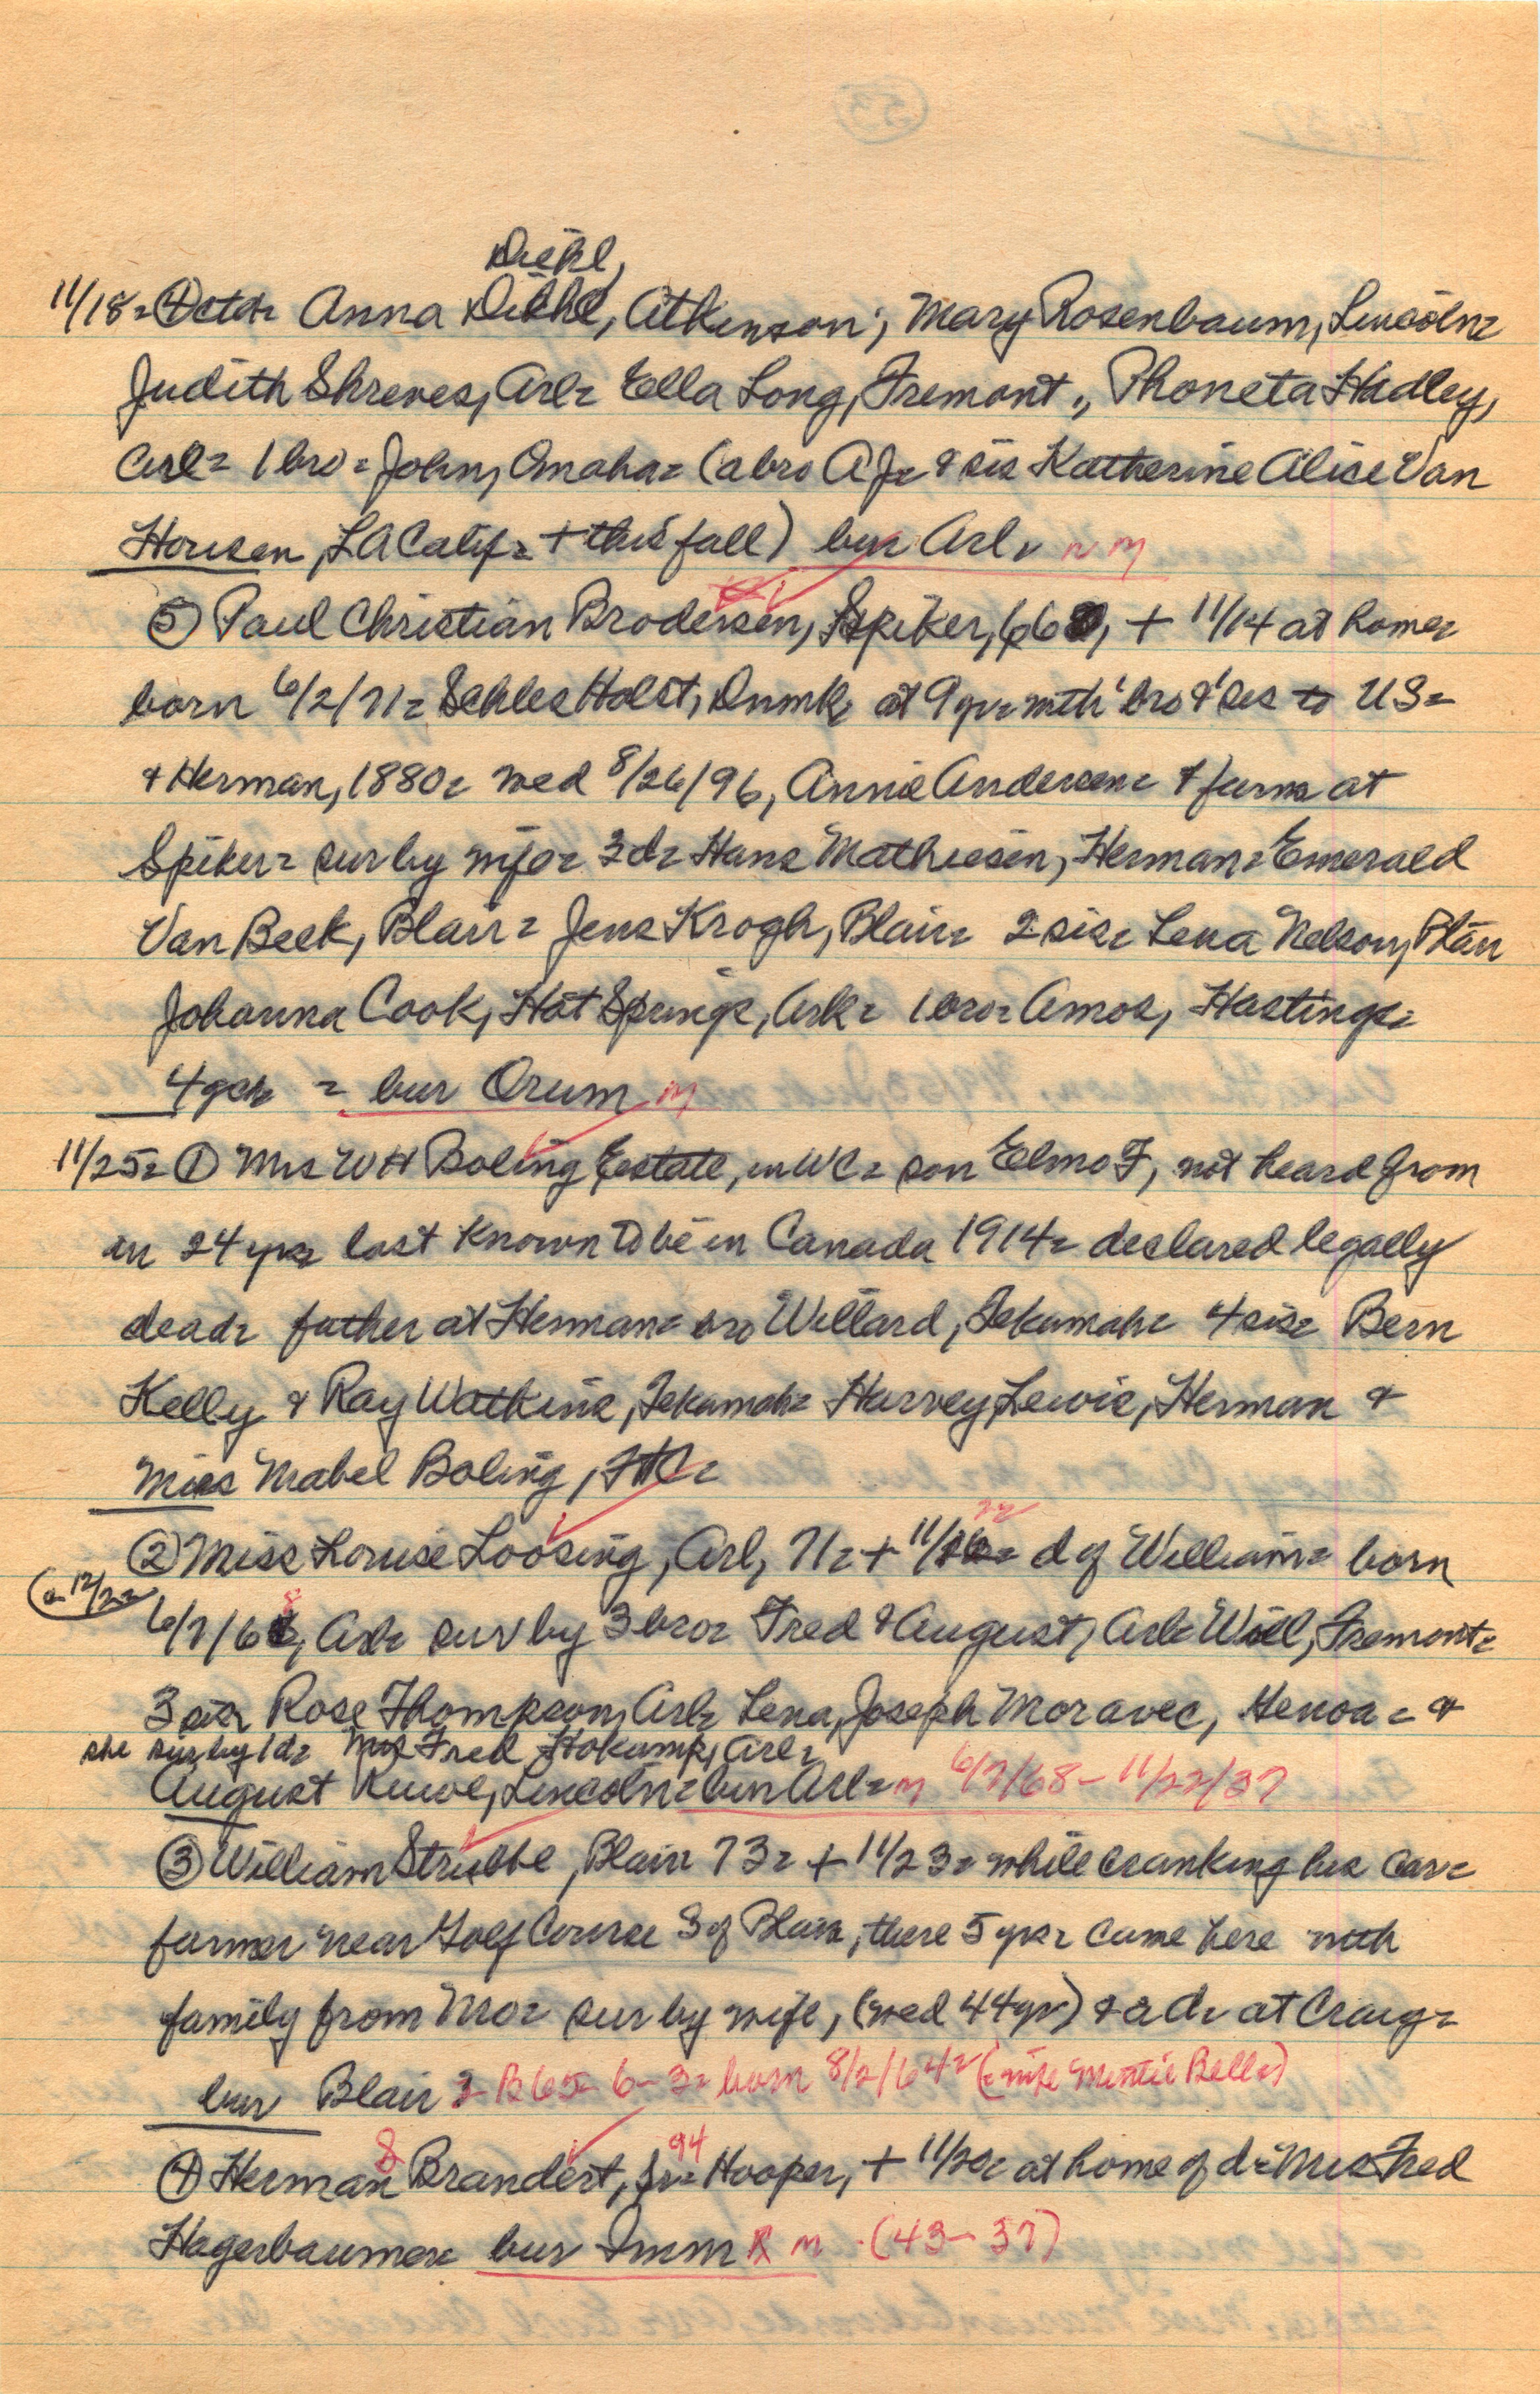 Diehl,
11/18= ④ ctd= Anna Diehl, Atkinson; Mary Rosenbaum, Lincoln=
Judith Shreves, Arl= Ella Long, Fremont., Phoneta Hadley,
Arl= 1 bro= John, Omaha= (a bro A J= & sis Katherine Alice Van
Housen, LA Calif= + this fall) bur Arl= n m
⑤ Paul Christian Brodersen, Spiker, 66, + 11/14 at home=
born 6/2/71= Schles Holst, Dnmk at 9 yr= with bro & sis to US=
& Herman, 1880= wed 8/26/96, Annie Andersen= & farms at
Spiker= sur by wife= 3 d= Hans Mathiesen, Herman= Emerald
Van Beek, Blair= Jens Krogh, Blair= 2 sis= Lena Nelson, Blair
Johanna Cook, Hot Springs, Ark= 1 bro= Amos, Hastings=
4 gch = bur Orum m
11/25= ① Mrs W H Boling Estate, in WC= son Elmo F, not heard from
in 24 yrs= last known to be in Canada 1914= declared legally
dead= father at Herman= bro Willard, Tekamah= 4 sis= Bern
Kelly & Ray Watkins, Tekamah= Harvey Lewis, Herman &
Miss Mabel Boling,
22
② Miss Louise Loosing, Arl, 71= + 11/ = d of William= born
(= 12/2=
6/7/68, Arl= surv by 3 bro= Fred & August, Arl= Will, Fremont=
3 sis= Rose Thompson, Arl= Lena, Joseph Moravec, Genoa= &
she sur by 1 d= Mrs Fred Hokamp, Arl=
August Ruwe, Lincoln= bur Arl= m 6/7/68 - 11/22/37
③ William Stribbe, Blair 73= + 11/23= while cranking his car=
farmer near Golf Course S of Blair, there 5 yrs= came here with
family from Mo= sur by wife, (wed 44 yr) & a d= at Craig=
bur Blair 2- B 65- 6- 3= born 8/2/64= (= wife Mintie Belle)
④ Herman Brandert, Sr= 94 Hooper, + 11/20= at home of d= Mrs Fred
Hagerbaumer= bur Imm m (43- 37)